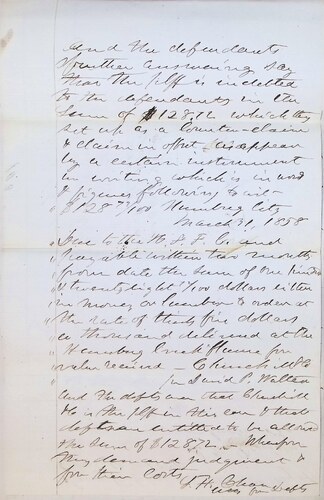 And the defendants
further answering say
that the plff is indebted
to the defendants in the
sum of $128.72 which they
set up as a Counter-claim
& claim in offset as appear
by a certain instrument
in writing which is in word
& figures following to wit
$128 7/100 City
March 31, 1858
Due to the W. & F. Co and
payable within two months
from date the sum of One hund
& twenty eight /100 dollars either
in money or lumber to order at
the rate of thirty five dollars
a thousand delivered at the
Creek flume for
value received — Church & Co
David P.
And the defts aver that
& Co is the plff in this case & that
defts are entitled to be allowed
the sum of $128.72 — Wherefore
they demand judgment &
for their Costs
atty for defts